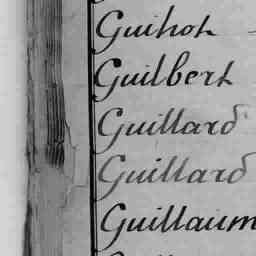 Guihot
Guilbert
Guillard
Guillard
Guillaum